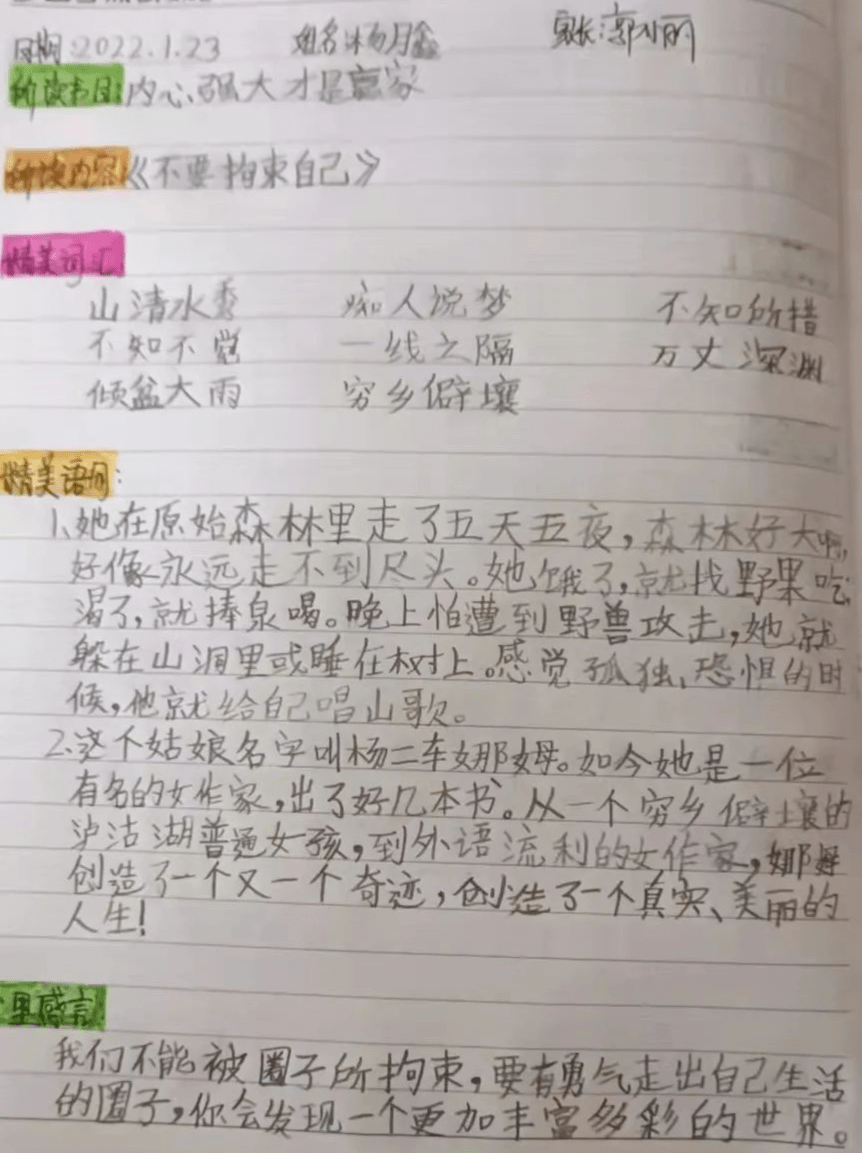 日期:2022.1.23 姓名:杨月鑫 家长:郭小丽
所读书目:内心强大才是赢家
所读内容《不要拘束自己》
精美词汇
山清水秀 痴人说梦 不知所措
不知不觉 一线之隔 万丈深渊
倾盆大雨 穷乡僻壤
精美语句:
1、她在原始森林里走了五天五夜,森林好大啊,
好像永远走不到尽头。她饿了,就找野果吃;
渴了,就捧泉喝。晚上怕遭到野兽攻击,她就
躲在山洞里或睡在树上。感觉孤独、恐惧的时
候,他就给自己唱山歌。
2、这个姑娘名字叫杨二车娜姆。如今她是一位
有名的女作家,出了好几本书。从一个穷乡僻壤的
泸沽湖普通女孩,到外语流利的女作家,娜姆
创造了一个又一个奇迹,创造了一个真实、美丽的
人生!
里感言
我们不能被圈子所拘束,要有勇气走出自己生活
的圈子,你会发现一个更加丰富多彩的世界。